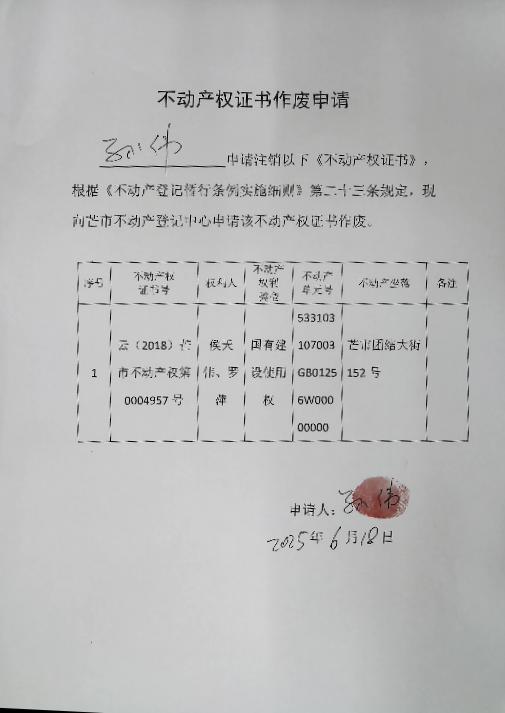 不动产权证书作废申请
伟 申请注销以下《不动产权证书》，
根据《不动产登记暂行条例实施细则》第二十三条规定，现
向芒市不动产登记中心申请该不动产权证书作废。
序号 不动产权证书号 权利人 不动产权利类型 不动产单元号 不动产坐落 备注
1 云（2018）芒市不动产权第0004957号 侯天伟、罗萍 国有建设使用权 533103107003GB01256W00000000 芒市团结大街152号
申请人： 伟
2025年6月18日